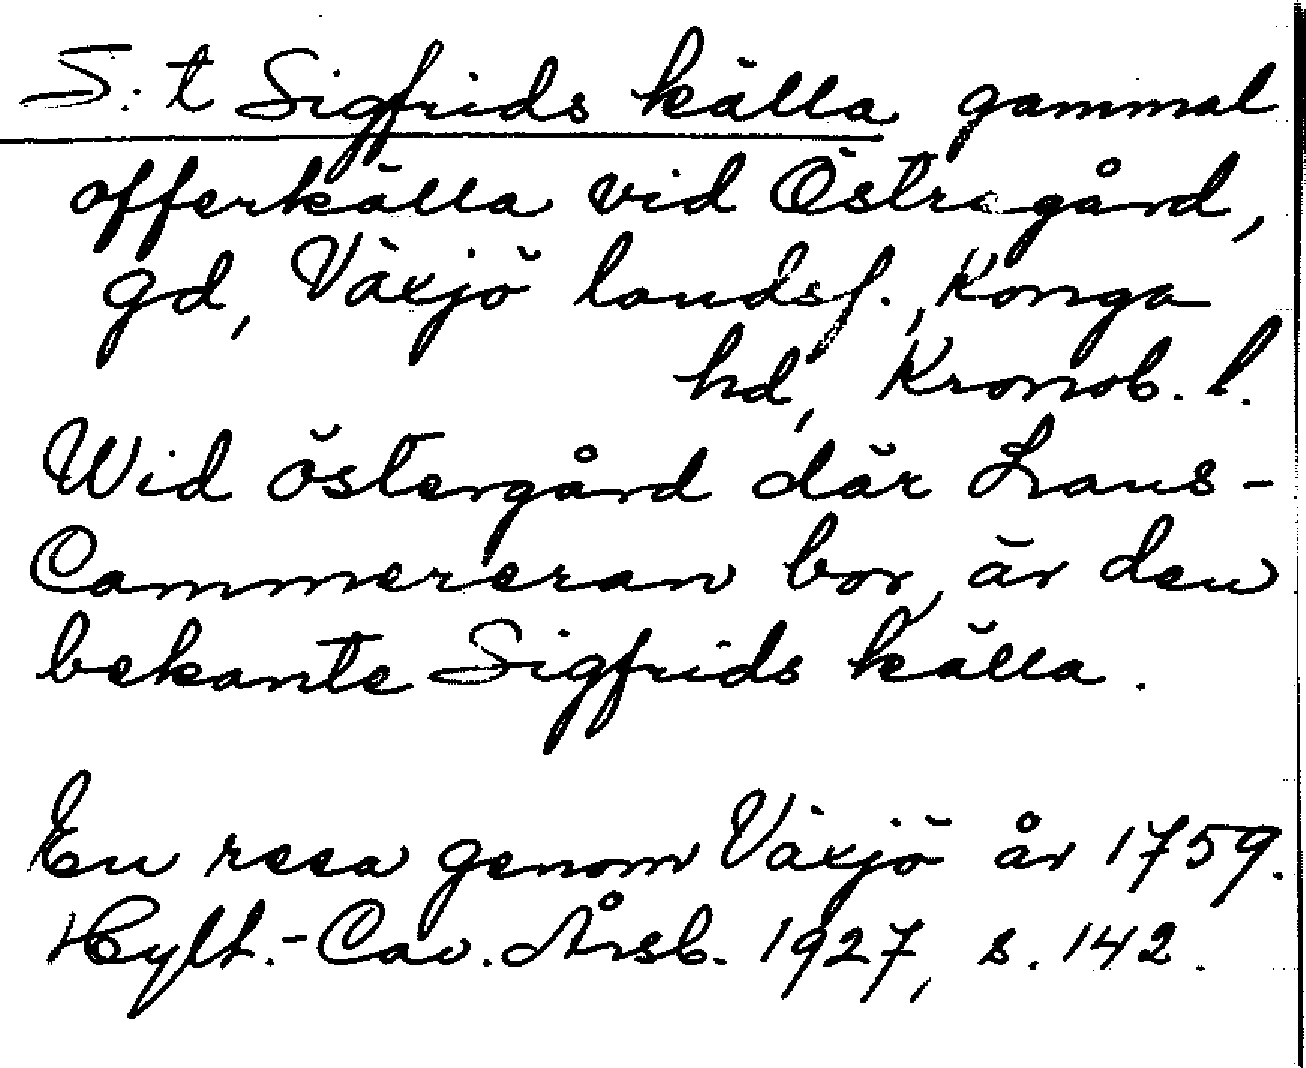 S:t Sigfrids källa gammal
offerkälla vid Östregård,
gd, Växjö landsf., Konga
hd, Kronob. l.
Wid östergård där Lans-
Cammereran bor, är den
bekante Sigfrids källa.
En resa genom Växjö år 1759.
Hylt.-Cav. Årsb. 1927, s. 142.